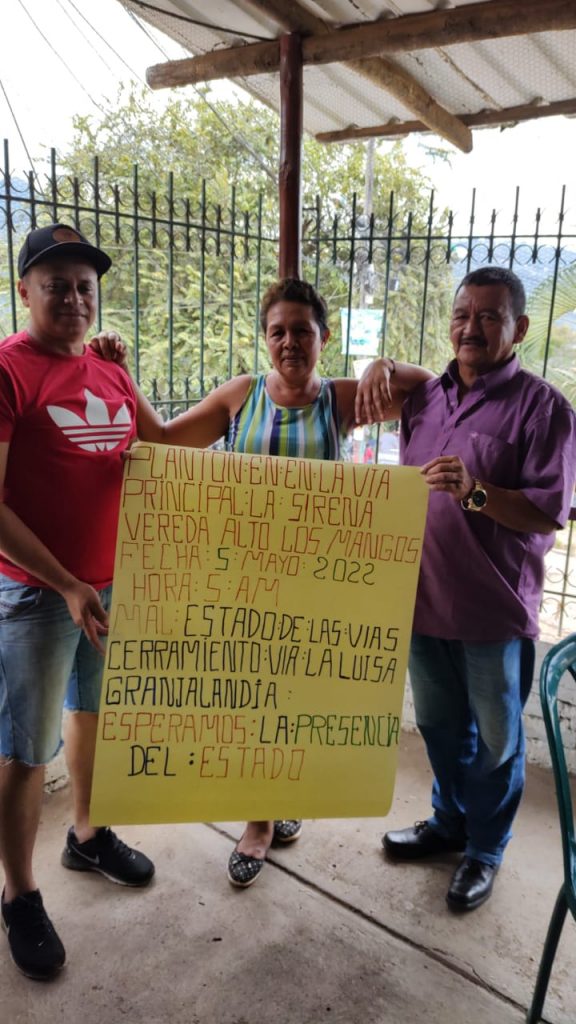 PLANTON:EN:EN:LA VIA
PRINCIPAL:LA: SIRENA
VEREDA ALTO LOS MANGOS
FECHA:5:MAYO:2022
HORA:5:AM
MAL:ESTADO:DE:LAS:VIAS
CERRAMIENTO:VIA:LA LUISA
GRANJALANDIA:
ESPERAMOS:LA:PRESENCIA
DEL:ESTADO